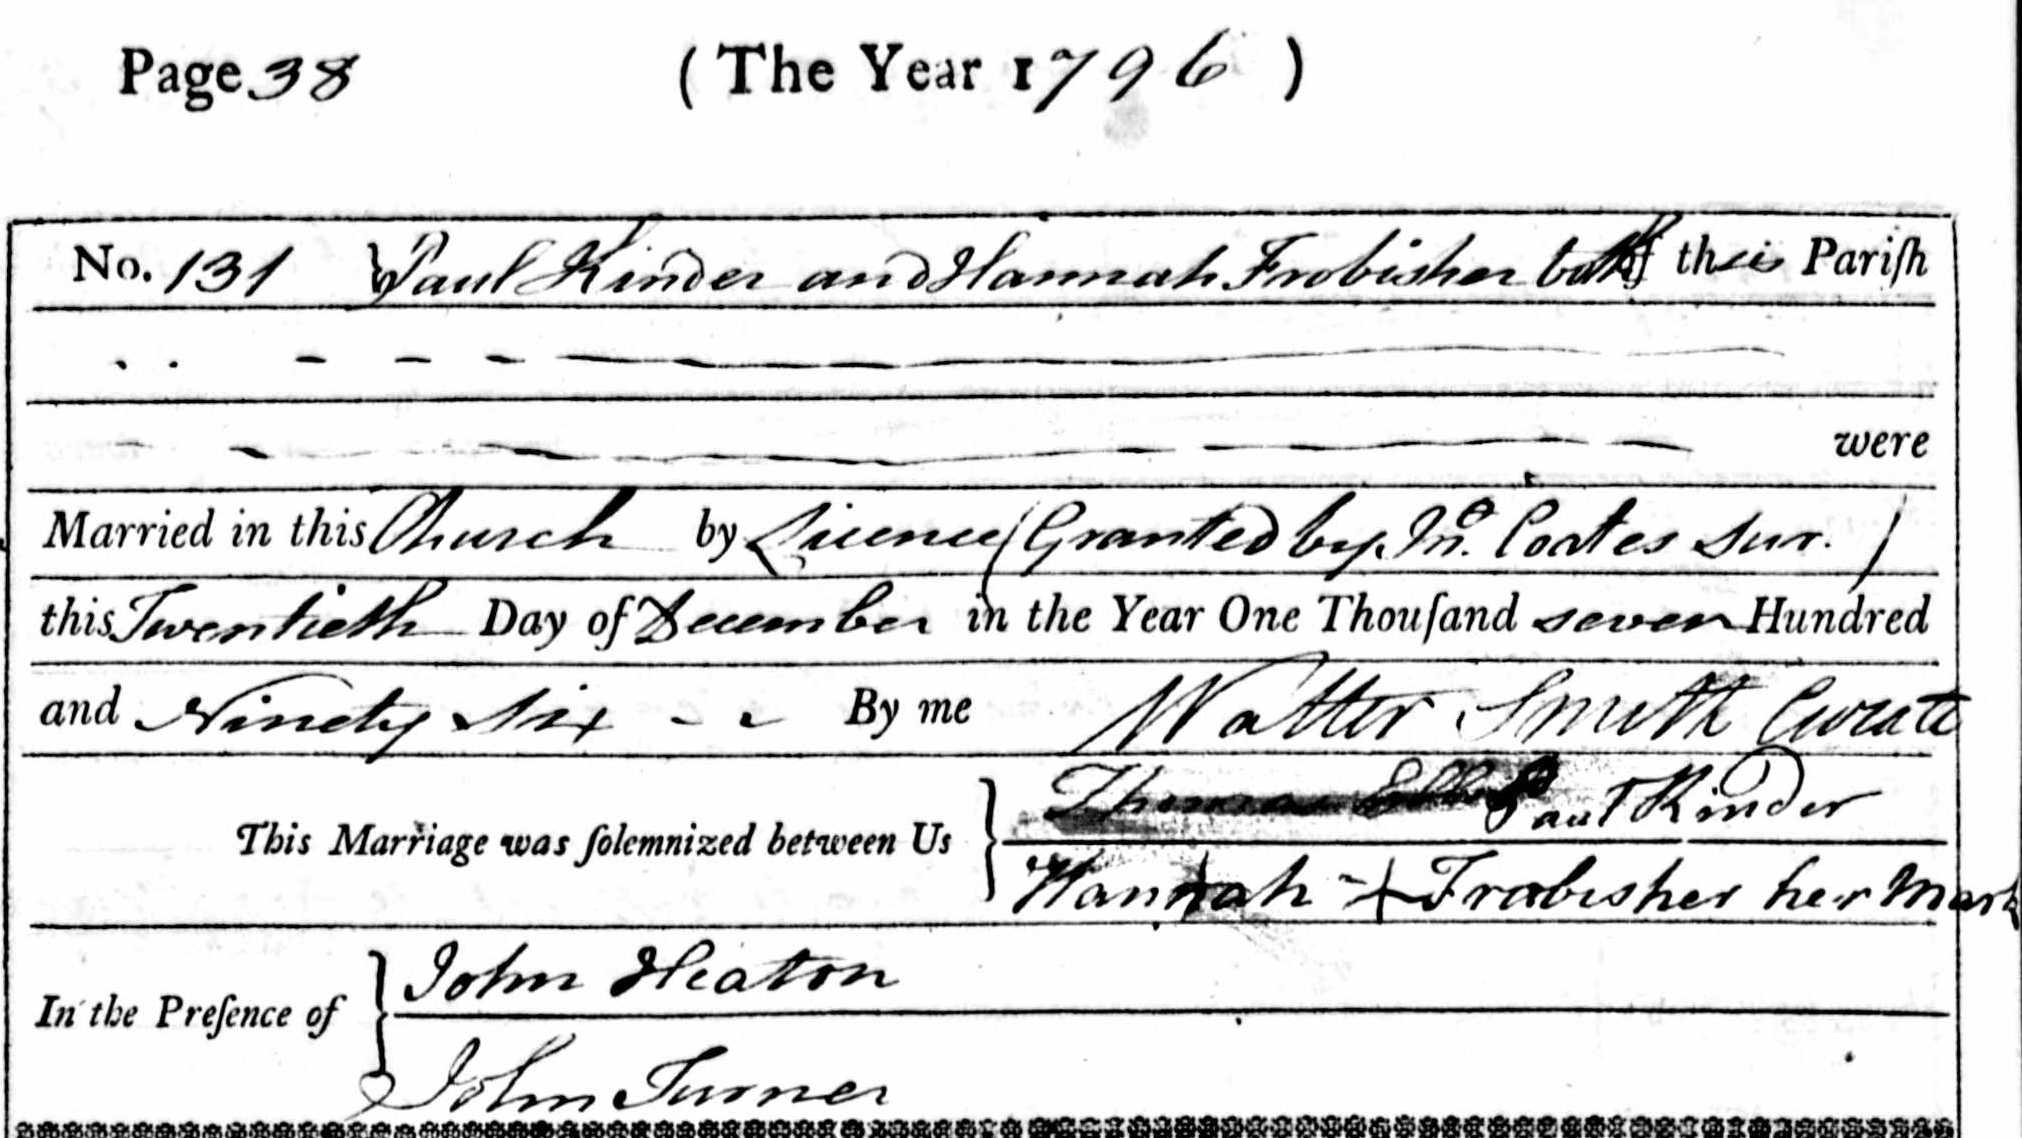 Page 38 ( The Year 1796 )
No. 131 } Paul Kinder and Hannah Frobisher both of this Pariſh
were
Married in this Church by Licence ( Granted by Mr. Coates Sur. )
this Twentieth Day of December in the Year One Thouſand seven Hundred
and Ninety Six - - By me Walter Smith Curate
Thomas Paul Kinder
This Marriage was ſolemnized between Us }
Hannah + Frobisher her Mark
John Heaton
In the Preſence of }
John Turner